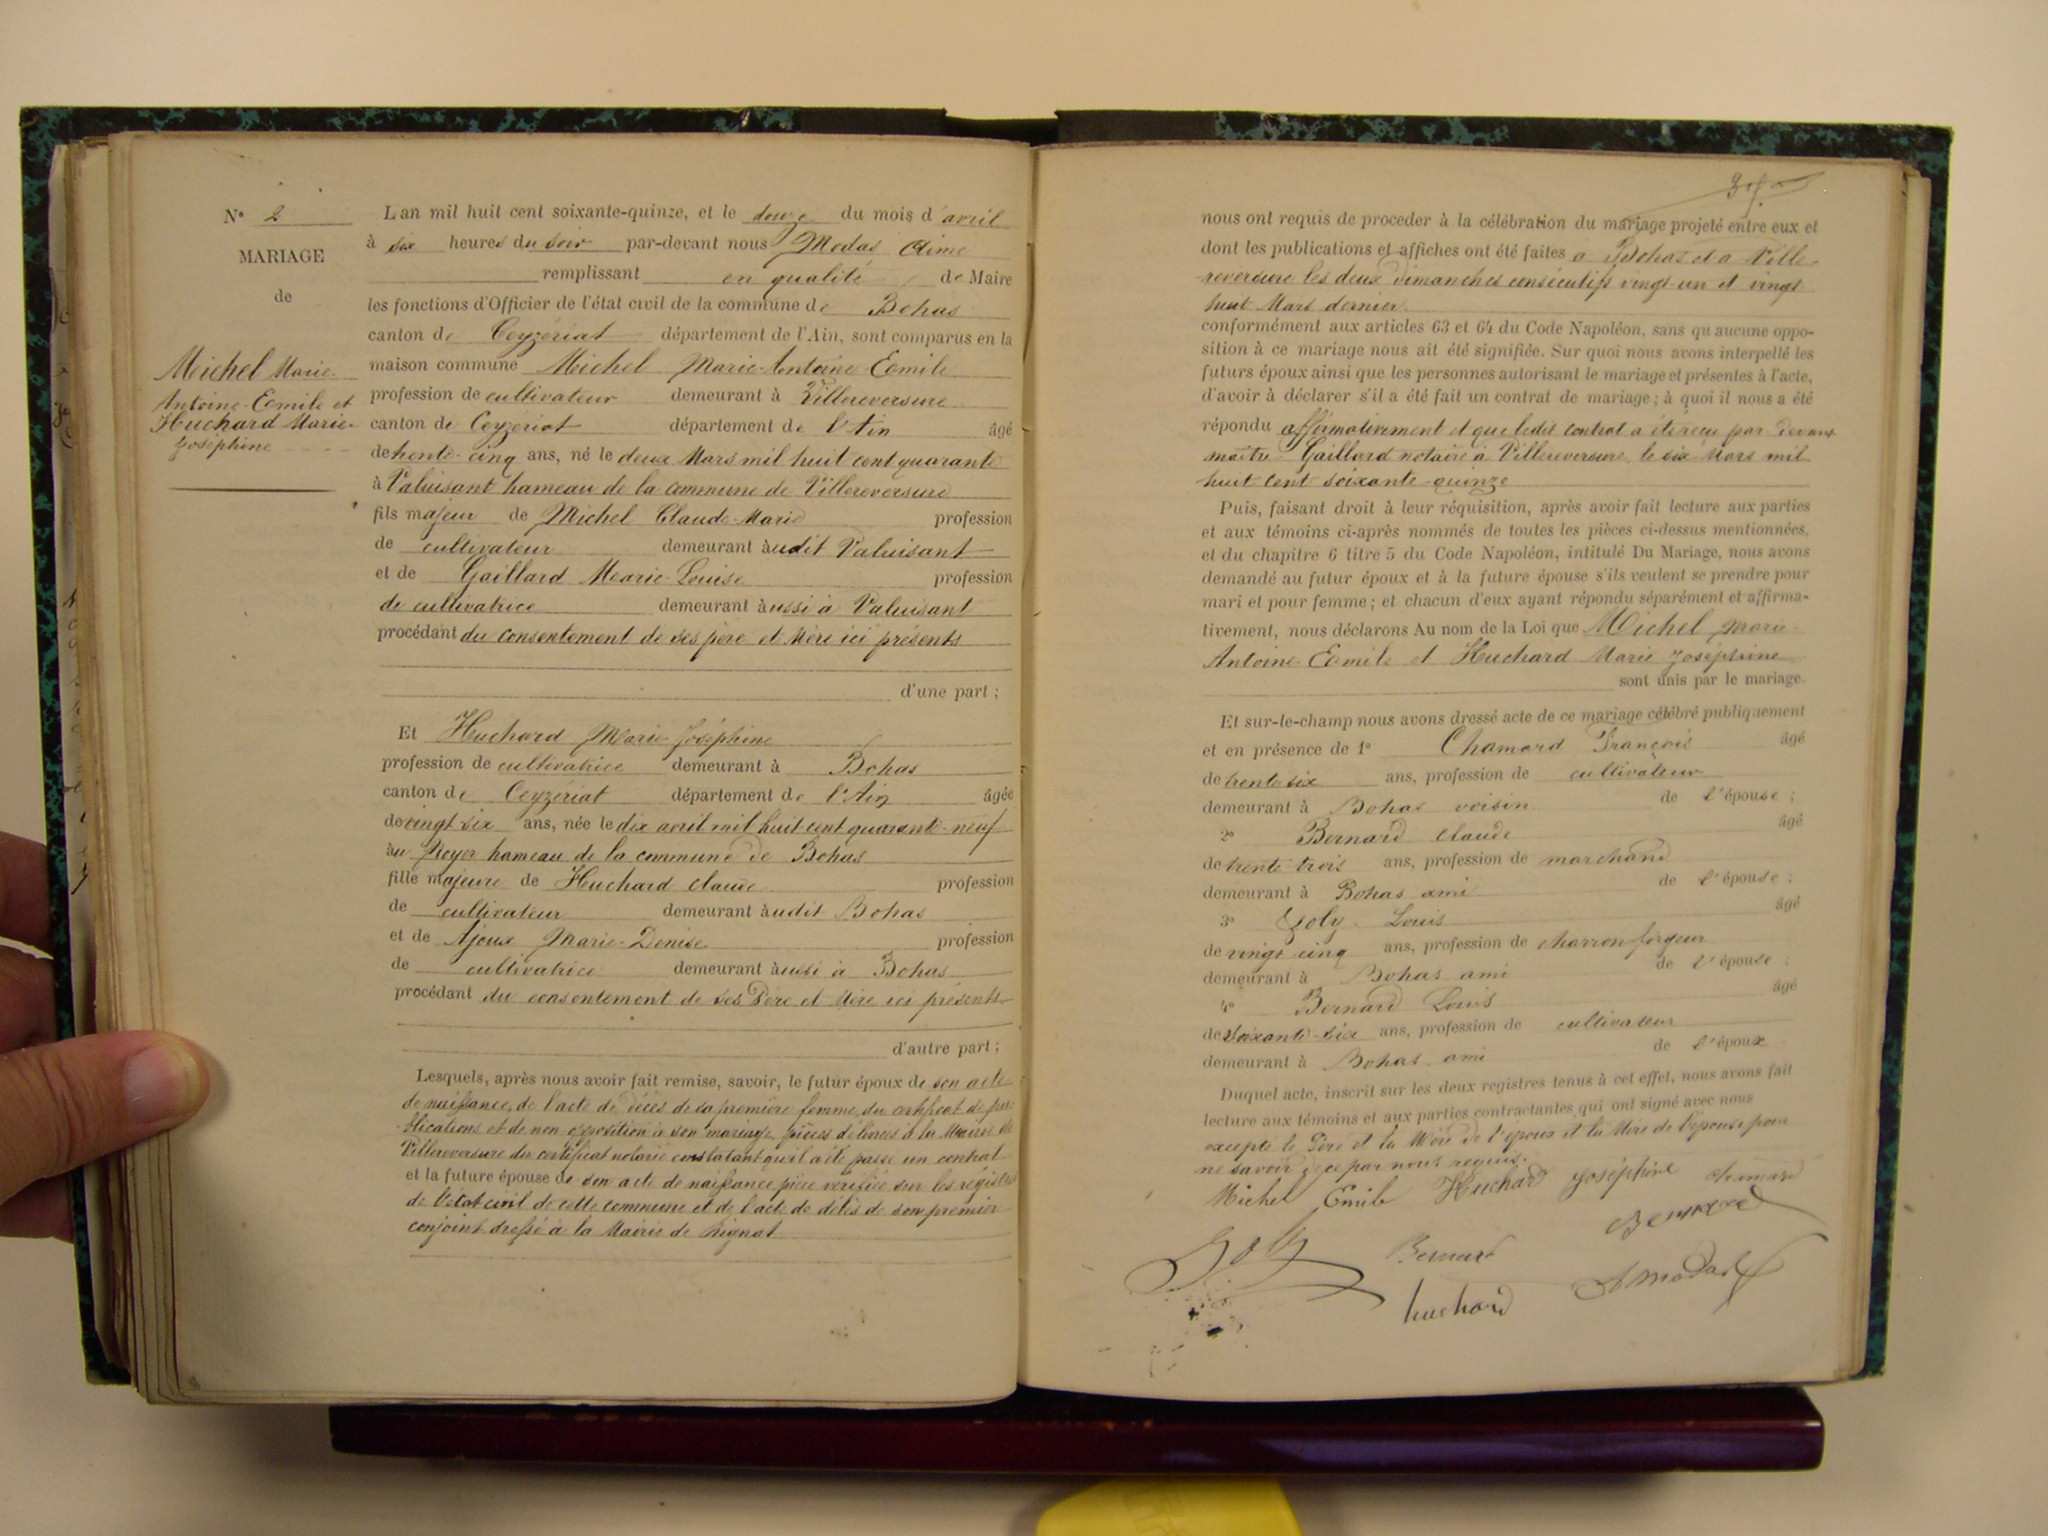 Nº 2
MARIAGE
de
Michel Marie-
Antoine-Emile et
Huchard Marie-
Joséphine
L'an mil huit cent soixante-quinze, et le douze du mois d'avril
à six heures du soir par-devant nous Modas Aimé
remplissant en qualité de Maire
les fonctions d'Officier de l'état civil de la commune de Bohas
canton de Ceyzériat département de l'Ain, sont comparus en la
maison commune Michel Marie-Antoine Emile
profession de cultivateur demeurant à Villereversure
canton de Ceyzeriat département de l'Ain âgé
de trente-cinq ans, né le deux Mars mil huit cent quarante
à Valuisant hameau de la commune de Villereversure
fils majeur de Michel Claude-Marie profession
de cultivateur demeurant àudit Valuisant
et de Gaillard Marie-Louise profession
de cultivatrice demeurant àussi à Valuisant
procédant du consentement de ses père et Mère ici présents
d'une part ;
Et Huchard Marie Joséphine
profession de cultivatrice demeurant à Bohas
canton de Ceyzériat département de l'Ain âgée
de vingt six ans, née le dix avril mil huit cent quarante-neuf
àu hameau de la commune de Bohas
fille majeure de Huchard Claude profession
de cultivateur demeurant àudit Bohas
et de Ajoux Marie-Denise profession
de cultivatrice demeurant àussi à Bohas
procédant du consentement de ses Père et Mère ici présents
d'autre part ;
Lesquels, après nous avoir fait remise, savoir, le futur époux de son acte
de naissance, de l'acte de décès de sa première femme, du certificat de pu-
blications et de non opposition à son mariage, pièces délivrées à la Mairie de
Villereversure du certificat notarié constatant qu'il a été passé un contrat
et la future épouse de son acte de naissance pièce verifiée sur les registres
de l'état civil de cette commune et de l'acte de décès de son premier
conjoint dressé à la Mairie de
nous ont requis de proceder à la célébration du mariage projeté entre eux et
dont les publications et affiches ont été faites à Bohas et à Ville-
reversure les deux dimanches consécutifs vingt-un et vingt
huit Mars dernier
conformément aux articles 63 et 64 du Code Napoléon, sans qu'aucune oppo-
sition à ce mariage nous ait été signifiée. Sur quoi nous avons interpellé les
futurs époux ainsi que les personnes autorisant le mariage et présentes à l'acte,
d'avoir à déclarer s'il a été fait un contrat de mariage ; à quoi il nous a été
répondu affirmativement et que ledit contrat a été reçu par devant
maître Gaillard notaire à Villereversure, le six Mars mil
huit cent soixante-quinze
Puis, faisant droit à leur réquisition, après avoir fait lecture aux parties
et aux témoins ci-après nommés de toutes les pièces ci-dessus mentionnées,
et du chapitre 6 titre 5 du Code Napoléon, intitulé Du Mariage, nous avons
demandé au futur époux et à la future épouse s'ils veulent se prendre pour
mari et pour femme ; et chacun d'eux ayant répondu séparément et affirma-
tivement, nous déclarons Au nom de la Loi que Michel Marie-
Antoine-Emile et Huchard Marie Joséphine
sont unis par le mariage.
Et sur-le-champ nous avons dressé acte de ce mariage célébré publiquement
et en présence de 1º Chamard François âgé
de trente six ans, profession de cultivateur
demeurant à Bohas voisin de l'épouse ;
2º Bernard Claude âgé
de trente trois ans, profession de marchand
demeurant à Bohas ami de l'épouse ;
3º Joly Louis âgé
de vingt cinq ans, profession de charron forgeur
demeurant à Bohas ami de l'épouse ;
4º Bernard Louis âgé
de soixante-six ans, profession de cultivateur
demeurant à Bohas ami de l'époux
Duquel acte, inscrit sur les deux registres tenus à cet effet, nous avons fait
lecture aux témoins et aux parties contractantes qui ont signé avec nous
excepté le Père et la Mère de l'époux et la Mère de l'épouse pour
ne savoir de ce par nous requis.
Michel Emile Huchard Joséphine Chamard
Bernard
Joly Bernard
huchard A Modas